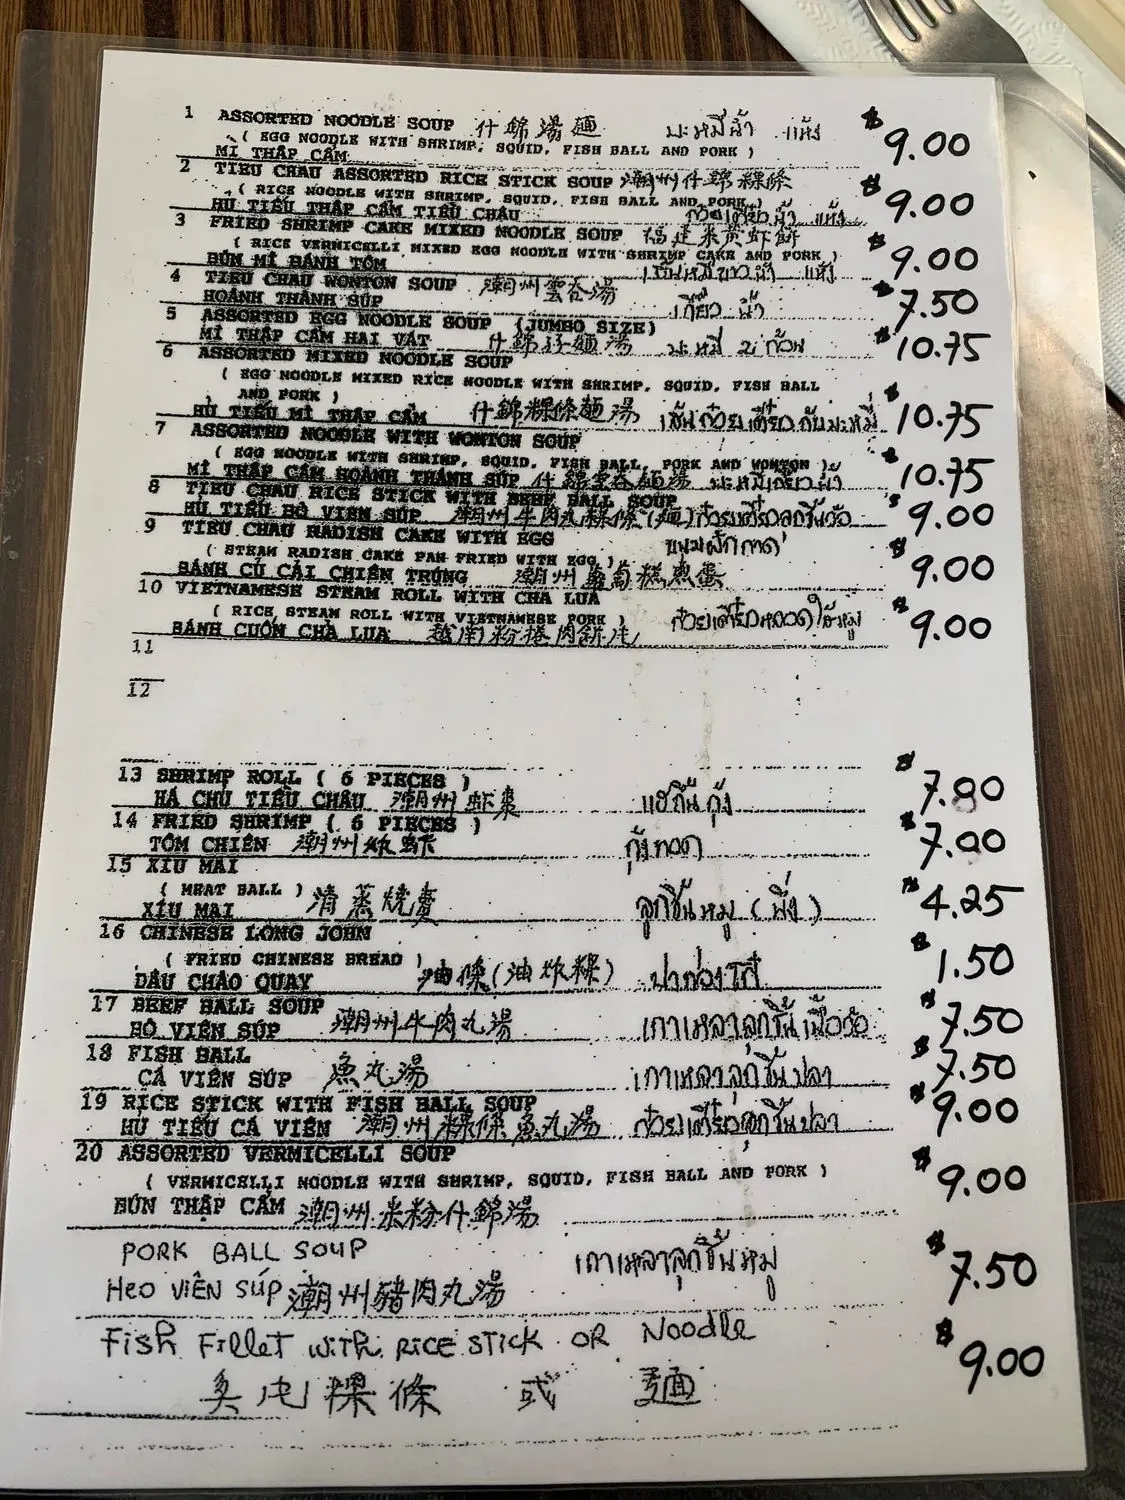 1 ASSORTED NOODLE SOUP 什錦湯麵 บะหมี่น้ำ แห้ง $9.00
( EGG NOODLE WITH SHRIMP, SQUID, FISH BALL AND PORK )
MÌ THẬP CẨM
2 TIEU CHAU ASSORTED RICE STICK SOUP 潮州什錦粿條 $9.00
( RICE NOODLE WITH SHRIMP, SQUID, FISH BALL AND PORK )
HỦ TIẾU THẬP CẨM TIỀU CHÂU ก๋วยเตี๋ยวน้ำ แห้ง
3 FRIED SHRIMP CAKE MIXED NOODLE SOUP 福建米黄虾餅 $9.00
( RICE VERMICELLI MIXED EGG NOODLE WITH SHRIMP CAKE AND PORK )
BÚN MÌ BÁNH TÔM น้ำ แห้ง
4 TIEU CHAU WONTON SOUP 潮州雲吞湯 $7.50
HOÀNH THÁNH SÚP เกี๊ยว น้ำ
5 ASSORTED EGG NOODLE SOUP (JUMBO SIZE) $10.75
MÌ THẬP CẨM HAI VẮT 什錦孖麵湯 บะหมี่ 2 ก้อน
6 ASSORTED MIXED NOODLE SOUP
( EGG NOODLE MIXED RICE NOODLE WITH SHRIMP, SQUID, FISH BALL
AND PORK )
HỦ TIẾU MÌ THẬP CẨM 什錦粿條麵湯 เส้นก๋วยเตี๋ยวกับบะหมี่ $10.75
7 ASSORTED NOODLE WITH WONTON SOUP
( EGG NOODLE WITH SHRIMP, SQUID, FISH BALL, PORK AND WONTON )
MÌ THẬP CẨM HOÀNH THÁNH SÚP 什錦雲吞麵湯 บะหมี่เกี๊ยวน้ำ $10.75
8 TIEU CHAU RICE STICK WITH BEEF BALL SOUP
HỦ TIẾU BÒ VIÊN SÚP 潮州牛肉丸粿條(麵) ก๋วยเตี๋ยวลูกชิ้นวัว $9.00
9 TIEU CHAU RADISH CAKE WITH EGG ขนมผักกาด
( STEAM RADISH CAKE PAN FRIED WITH EGG ) $9.00
BÁNH CỦ CẢI CHIÊN TRỨNG 潮州蔔萄糕煎蛋
10 VIETNAMESE STEAM ROLL WITH CHA LUA
( RICE STEAM ROLL WITH VIETNAMESE PORK ) ก๋วยเตี๋ยวหลอดไส้หมู $9.00
BÁNH CUỐN CHẢ LỤA 越南粉捲肉餅
11
12
13 SHRIMP ROLL ( 6 PIECES ) $7.00
HÁ CHÚ TIỀU CHÂU 潮州虾棗 แฮกึ๊นกุ้ง
14 FRIED SHRIMP ( 6 PIECES ) $7.00
TÔM CHIÊN 潮州炸虾 กุ้งทอด
15 XIU MAI
( MEAT BALL ) $4.25
XÍU MẠI 清蒸燒賣 ลูกชิ้นหมู ( นึ่ง )
16 CHINESE LONG JOHN
( FRIED CHINESE BREAD ) $1.50
DẦU CHÁO QUẢY 油條(油炸粿) ปาท่องโก๋
17 BEEF BALL SOUP $7.50
BÒ VIÊN SÚP 潮州牛肉丸湯 เกาเหลาลูกชิ้นเนื้อวัว
18 FISH BALL $7.50
CÁ VIÊN SÚP 魚丸湯 เกาเหลาลูกชิ้นปลา
19 RICE STICK WITH FISH BALL SOUP $9.00
HỦ TIẾU CÁ VIÊN 潮州粿條魚丸湯 ก๋วยเตี๋ยวลูกชิ้นปลา
20 ASSORTED VERMICELLI SOUP
( VERMICELLI NOODLE WITH SHRIMP, SQUID, FISH BALL AND PORK ) $9.00
BÚN THẬP CẨM 潮州米粉什錦湯
PORK BALL SOUP เกาเหลาลูกชิ้นหมู $7.50
HEO VIÊN SÚP 潮州豬肉丸湯
Fish Fillet with RICE STICK OR Noodle $9.00
粿條 或 麵